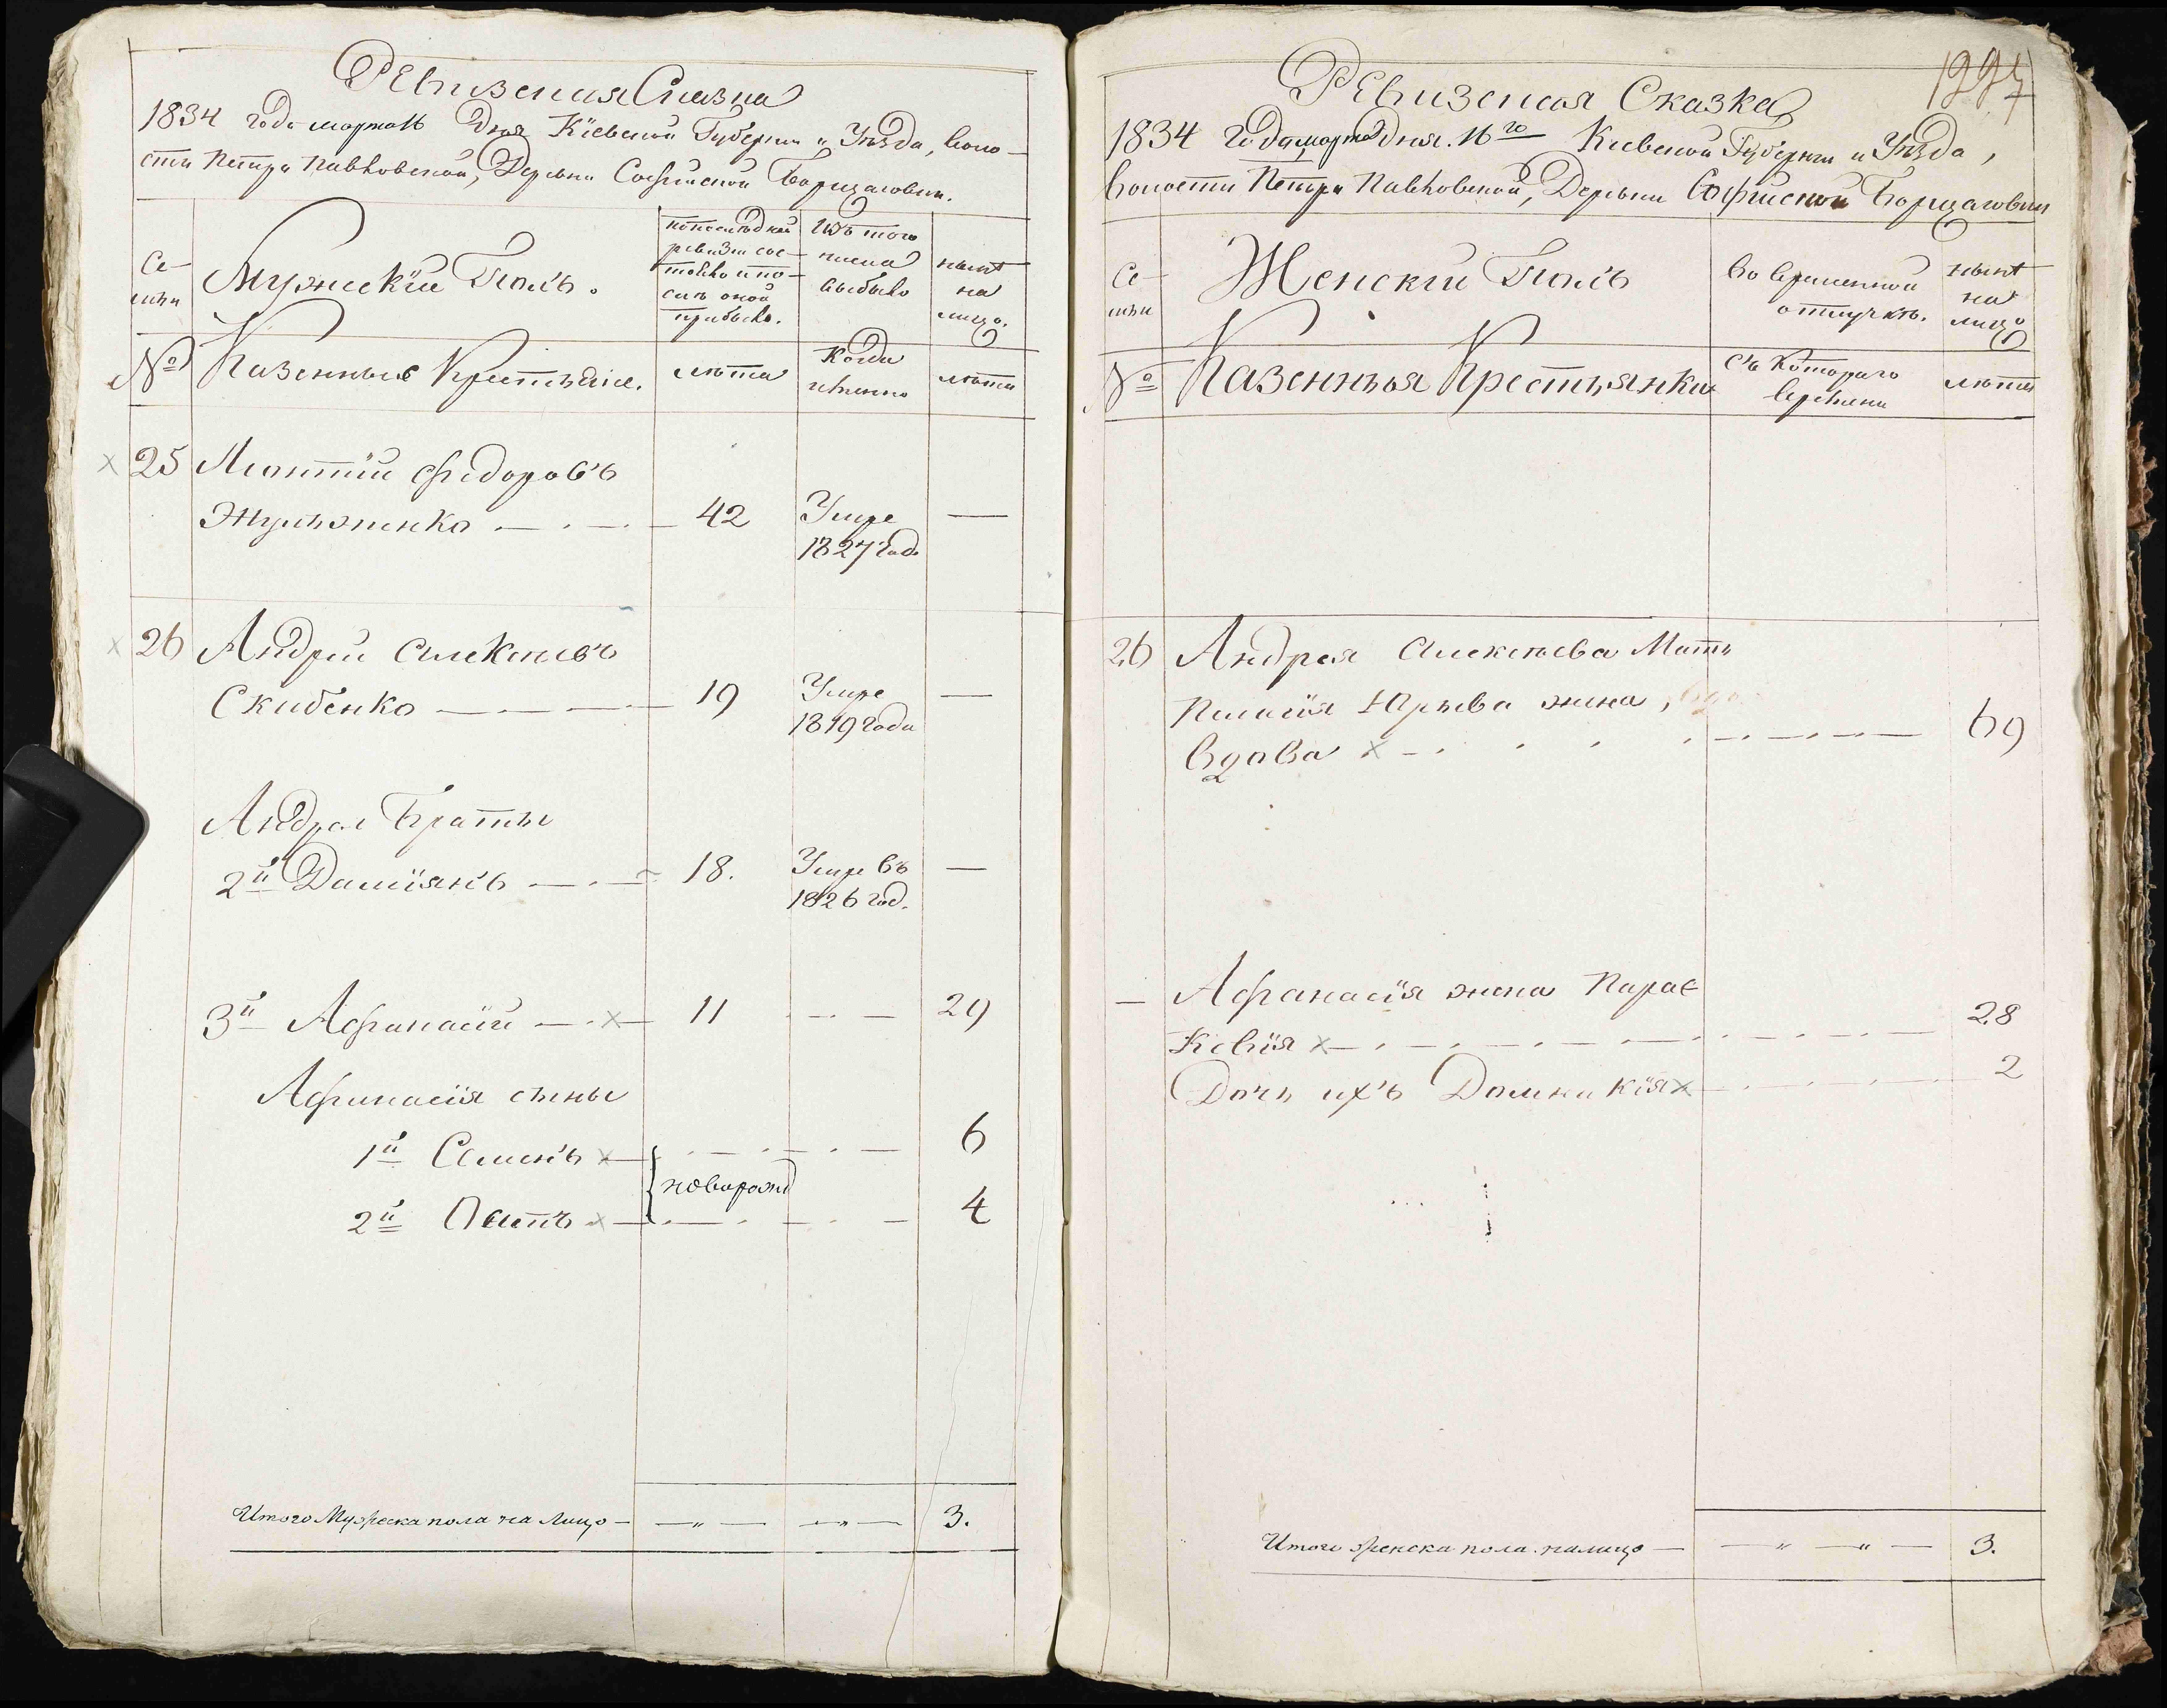 Ревизская Сказка
1834 года марта 16 Дня Кіевской Губерніи и Уѣзда, Воло-
сти Петро Павловской, Деревни Софійской Борщаговки.
Се-
мьи
Мужескій Полъ.
По последней
ревизіи сос-
тояло и по-
слѣ оной
прибыло.
Изъ того
числа
выбыло
нынѣ
на
лицо.
№
Казенные Крестьяне.
лѣта
Когда
именно
лѣта
25 Леонтій Федоровъ
42 Умре —
1827 год
26 Андрей Алексѣевъ
Скибенко — 19 Умре —
1819 года
Андрея Браты
2й Даміянъ — 18. Умре въ —
1826 год.
3й Афанасій — х — 11 — 29
Афанасія сыны
1й Семенъ х — 6
новорожд
2й Остапъ х — 4
Итого Мужеска пола на лицо — — „ — — „ — 3.
1227
Ревизская Сказка
1834 Года марта Дня. 16го Киевской Губерніи и Уѣзда,
Волости Петро Павловской, Деревни Софийской Борщаговки
Се-
мьи
Женский Полъ
Во временной
отлучкѣ.
нынѣ
на
лицо
№
Казенныя Крестьянки
съ Котораго
времени
лѣта
26 Андрея Алексѣева Мать
Пелагія Юрьева жена,
вдова х — 69
— Афанасія жена Парас
кевія х — 28
Дочь ихъ Домникія х — 2
Итого женска пола налицо — — „ — „ — 3.